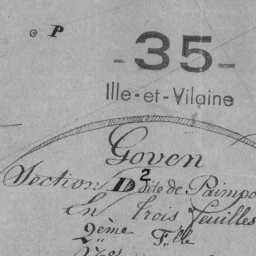 P
- 35 -
Ille-et-Vilaine
Goven
Section D2 dite de Paimpo
En trois feuilles
2ème F.lle